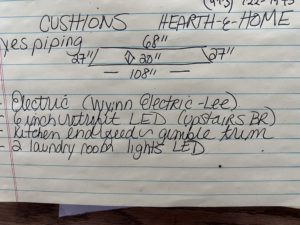 (973) 722-1973
CUSHIONS HEARTH-&-HOME
yes piping 68"
27" 20" 27"
108"
- Electric (Wynn Electric-Lee)
- 6 inch retrofit LED (upstairs BR)
- kitchen end gimble trim
- 2 laundry room lights LED